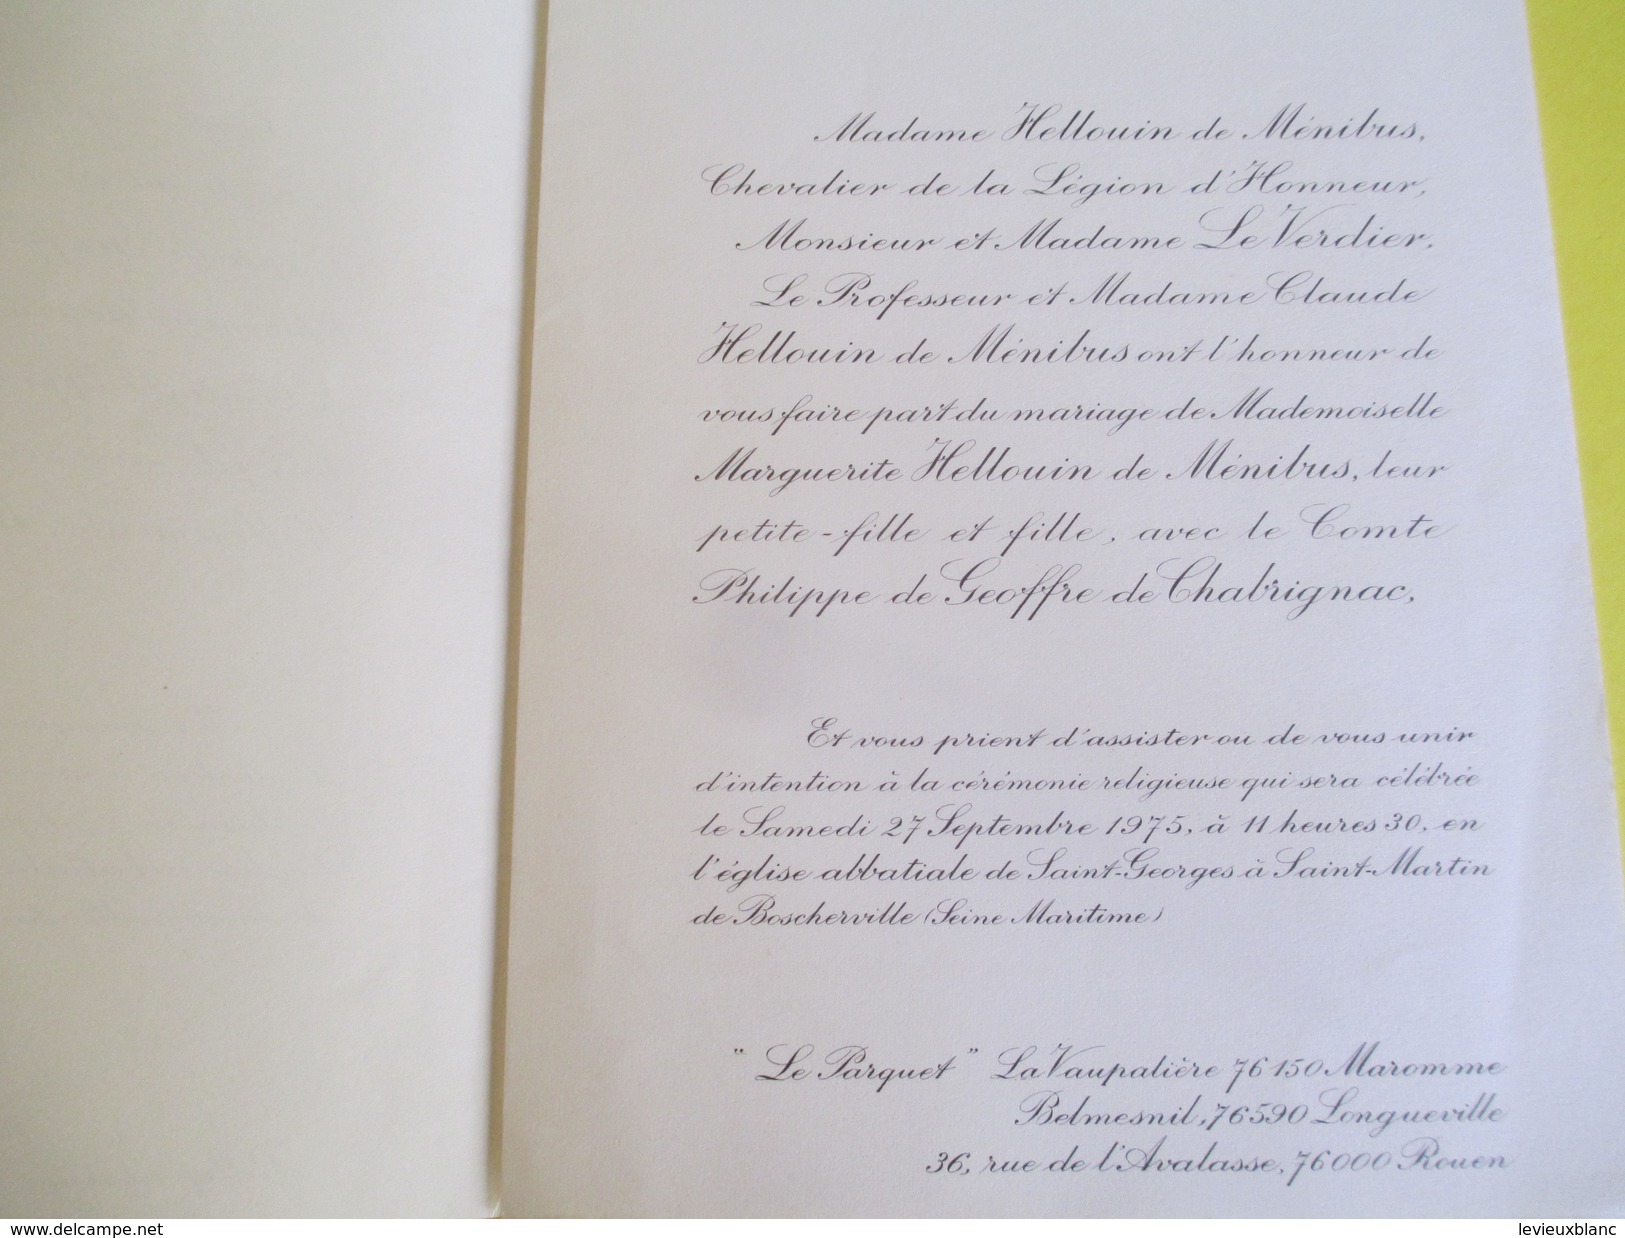 Madame Hellouin de Ménibus,
Chevalier de la Légion d'Honneur,
Monsieur et Madame Le Verdier,
Le Professeur et Madame Claude
Hellouin de Ménibus ont l'honneur de
vous faire part du mariage de Mademoiselle
Marguerite Hellouin de Ménibus, leur
petite-fille et fille, avec le Comte
Philippe de Geoffre de Chabrignac,
Et vous prient d'assister ou de vous unir
d'intention à la cérémonie religieuse qui sera célébrée
le Samedi 27 Septembre 1975, à 11 heures 30, en
l'église abbatiale de Saint-Georges à Saint-Martin
de Boscherville (Seine Maritime)
"Le Parquet" La Vaupalière 76150 Maromme
Belmesnil, 76590 Longueville
36, rue de l'Avalasse, 76000 Rouen
www.delcampe.net
levieuxblanc